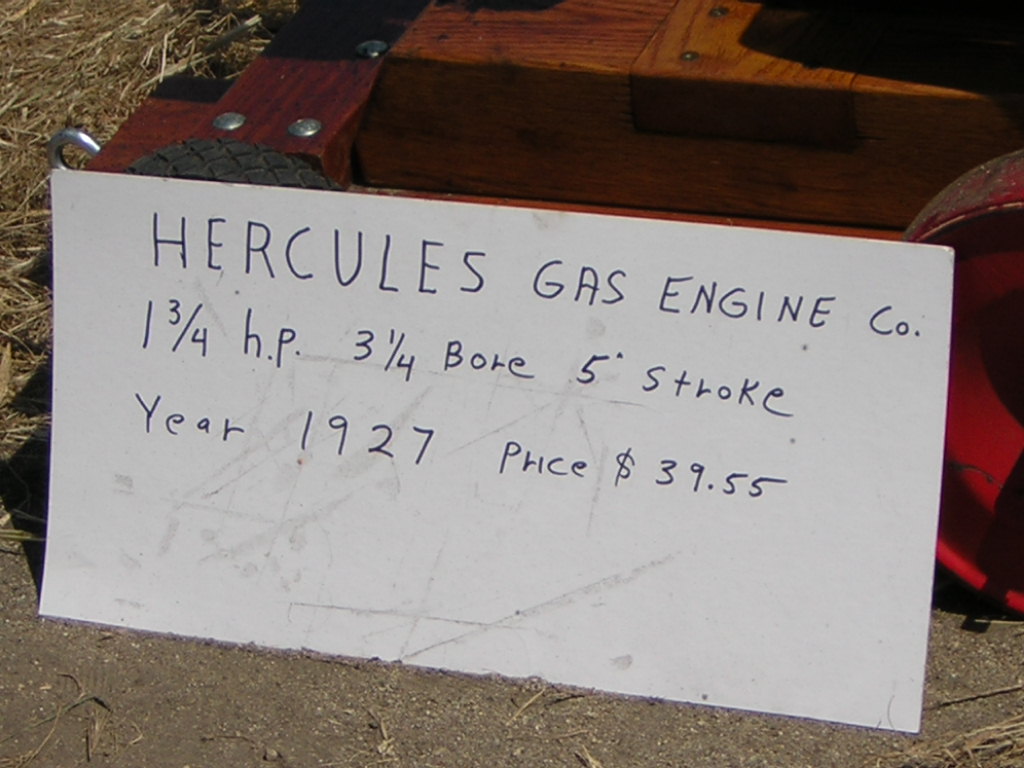 HERCULES GAS ENGINE Co.
1 3/4 h.p. 3 1/4 Bore 5" Stroke
Year 1927 Price $ 39.55